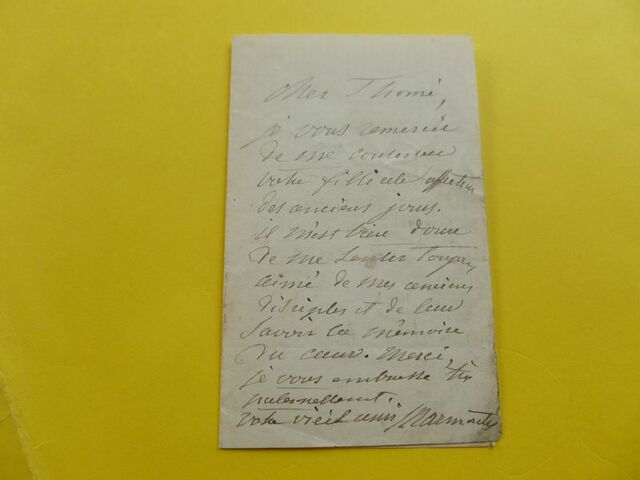 Cher Thomé,
je vous remercie
de me conserver
votre filliale affection
des anciens jours.
il m'est bien doux
de me sentir toujours
aimé de mes anciens
disciples et de leur
savoir la mémoire
du cœur. Merci,
je vous embrasse très
paternellement.
votre vieil ami Marmontel